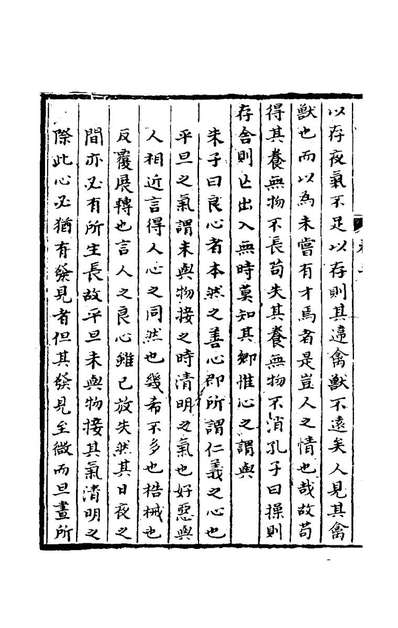 以存夜氣不足以存則其違禽獸不遠矣人見其禽
獸也而以為未嘗有才焉者是豈人之情也哉故苟
得其養無物不長苟失其養無物不消孔子曰操則
存舍則亡出入無時莫知其鄉惟心之謂與
朱子曰良心者本然之善心即所謂仁義之心也
平旦之氣謂未與物接之時清明之氣也好惡與
人相近言得人心之同然也幾希不多也梏械也
反覆展轉也言人之良心雖已放失然其日夜之
間亦必有所生長故平旦未與物接其氣清明之
際此心必猶有發見者但其發見至微而旦晝所